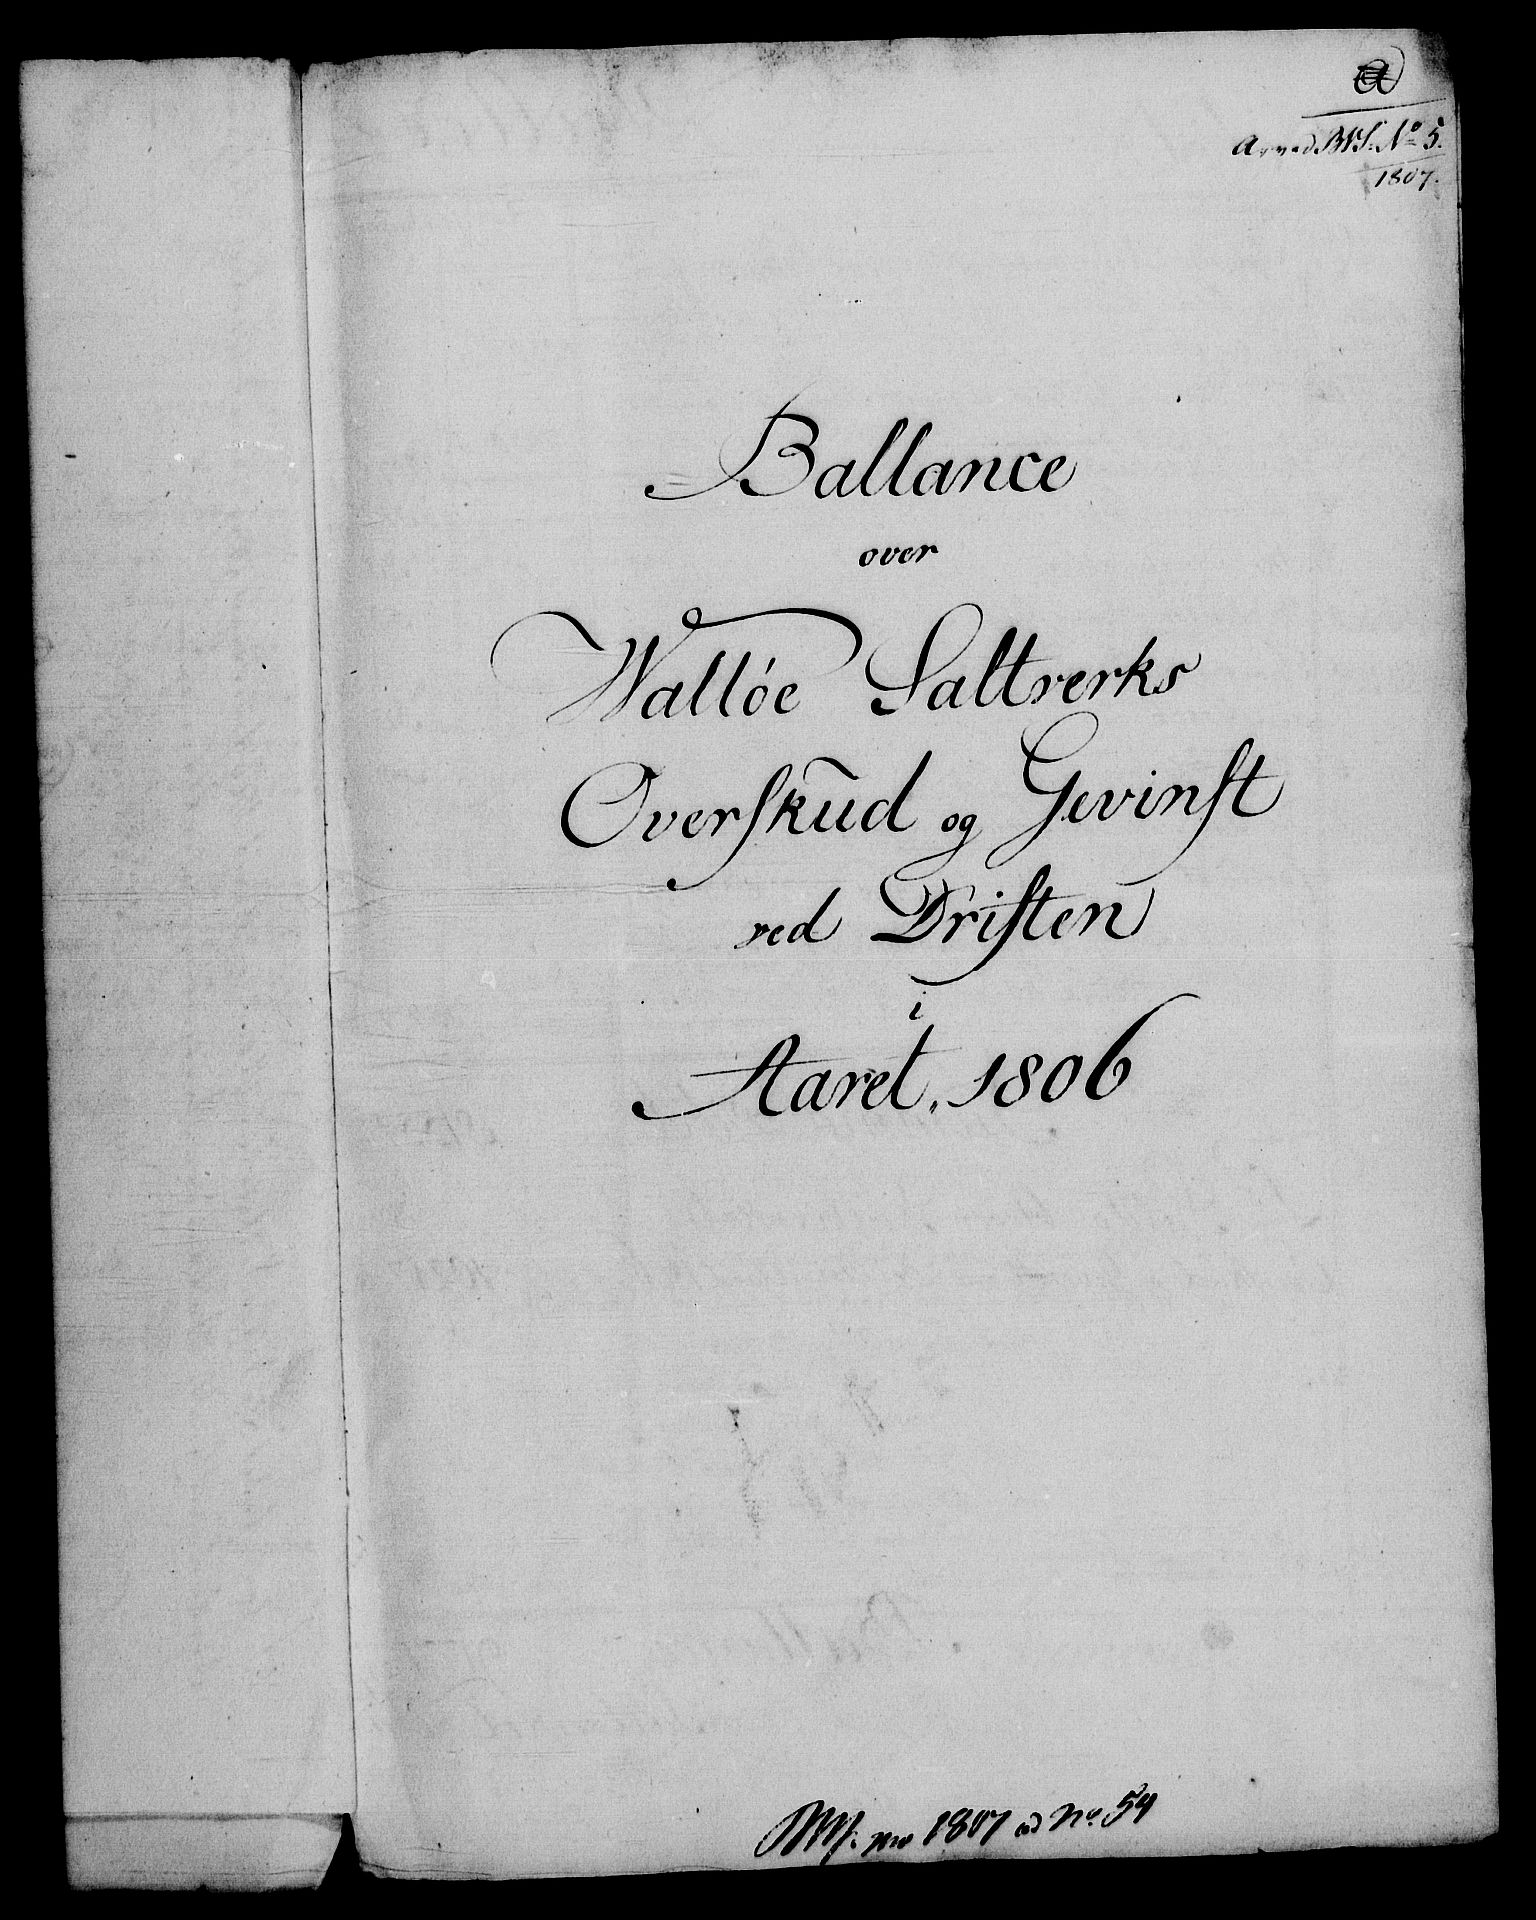 a
No 5.
1807.
Ballance
over
Walløe Saltverks
Overskud og Gevinst
ved Driften
i
Aaret, 1806
1807 ad No. 54